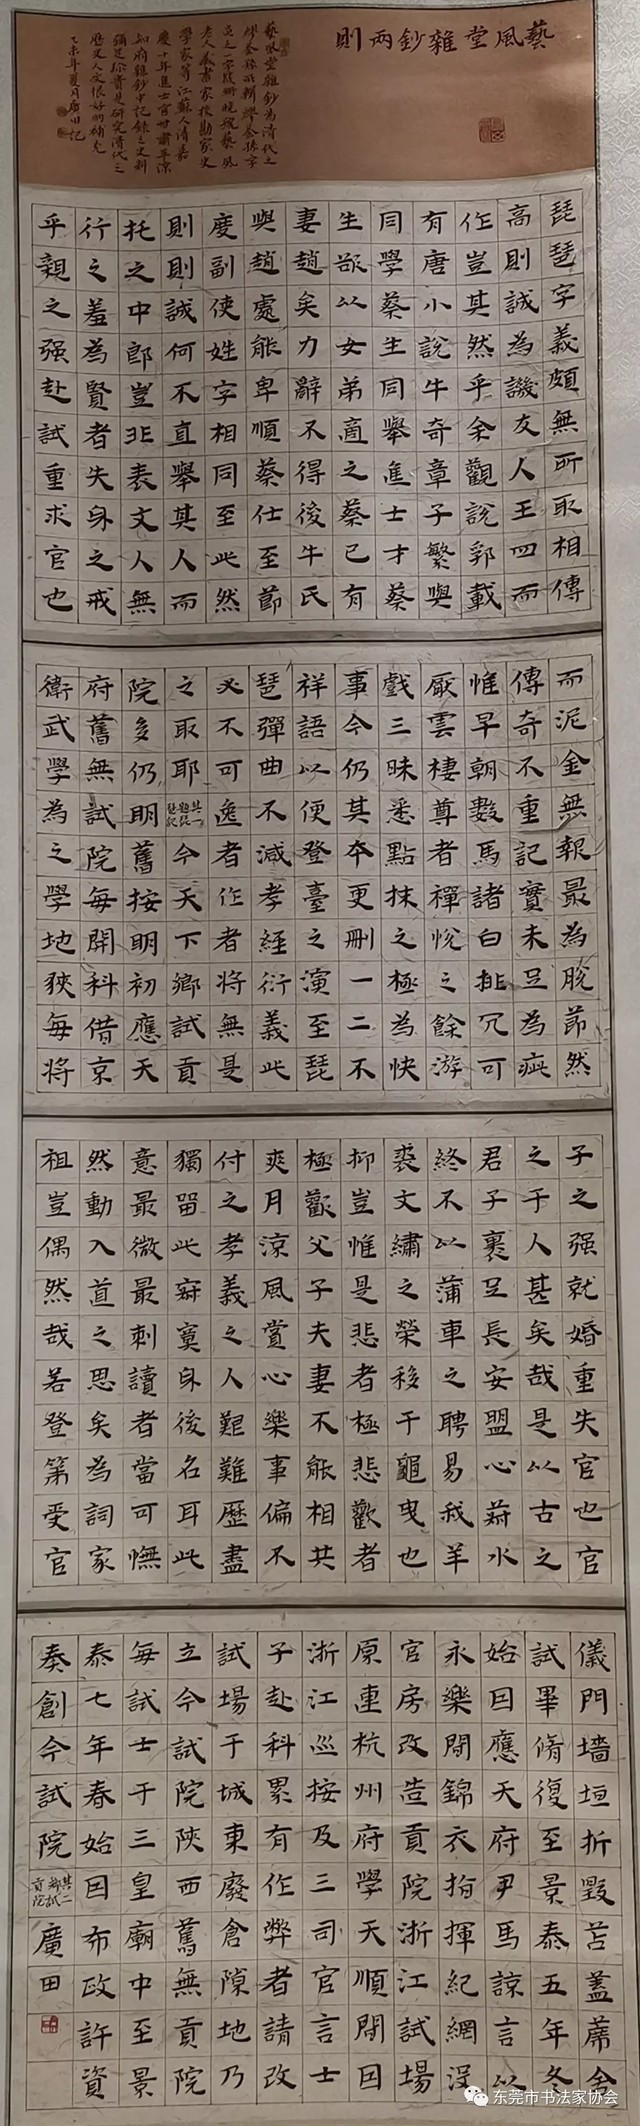 藝風堂雜鈔兩則
藝風堂雜鈔為清代之
繆荃孫所輯繆荃孫字
炎之一字筱珊晚號藝風
老人藏書家校勘家史
學家等江蘇人清嘉
慶十年進士官甘肅平涼
知府雜鈔中記錄之史料
彌足珍貴是研究清代之
歷史人文很好的補充
乙未年夏月廣田記
琵琶字義頗無所取相傳
高則誠為譏友人王四而
作豈其然乎余觀說郛載
有唐小說牛奇章子繁與
同學蔡生同舉進士才蔡
生欲以女弟適之蔡已有
妻趙矣力辭不得後牛氏
與趙處能卑順蔡仕至節
度副使姓字相同至此然
則則誠何不直舉其人而
托之中郎豈非表文人無
行之羞為賢者失身之戒
乎親之强赴試重求官也
而泥金無報最為脫節然
傳奇不重記實未足為疵
惟早朝數馬諸白批冗可
厭雲棲尊者禪悅之餘游
戲三昧悉點抹之極為快
事今仍其本更刪一二不
祥語以便登臺之演至琵
琶彈曲不減孝經衍義此
必不可逸者作者將無是
之取耶其一題琵琶記今天下鄉試貢
院多仍明舊按明初應天
府舊無試院每開科借京
衛武學為之學地狹每將
子之强就婚重失官也官
之于人甚矣哉是以古之
君子裹足長安盟心葑水
終不以蒲車之聘易我羊
裘文繡之榮移于龜曳也
抑豈惟是悲者極悲歡者
極歡父子夫妻不能相共
爽月涼風賞心樂事偏不
付之孝義之人艱難歷盡
獨留此寂寞身後名耳此
意最微最刺讀者當可憮
然動入道之思矣為詞家
祖豈偶然哉若登第受官
儀門墻垣折毀苫蓋蓆舍
試畢脩復至景泰五年冬
始因應天府尹馬諒言以
永樂間錦衣指揮紀綱沒
官房改造貢院浙江試場
原連杭州府學天順間因
浙江巡按及三司官言士
子赴科累有作弊者請改
試場于城東廢倉隙地乃
立今試院陝西舊無貢院
每試士于三皇廟中至景
泰七年春始因布政許資
奏創今試院其二鄉試貢院廣田
东莞市书法家协会